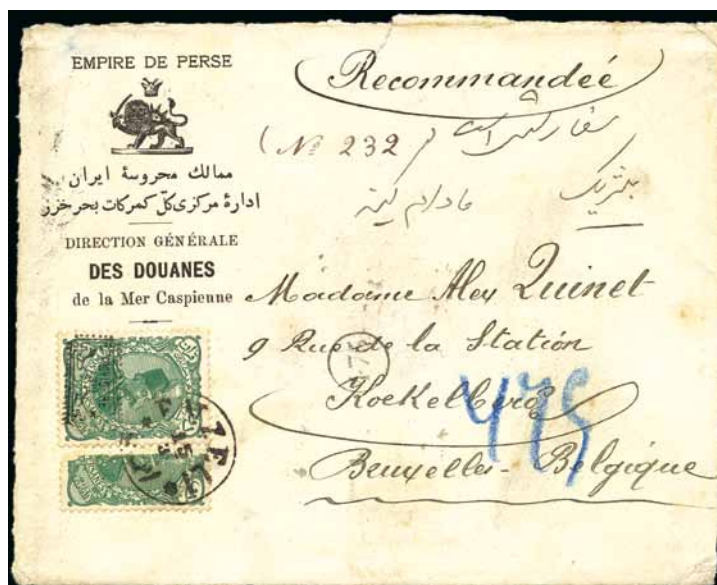 EMPIRE DE PERSE
ممالك محروسهٔ ایران
ادارهٔ مرکزی کلّ کمرکات بحر خزر
DIRECTION GÉNÉRALE
DES DOUANES
de la Mer Caspienne
Recommandée
(No 232)
سفارشی است
بلژیک
مادام کینه
Madame Alex Quinet
9 Rue de la Station
Koekelberg
475
Bruxelles - Belgique